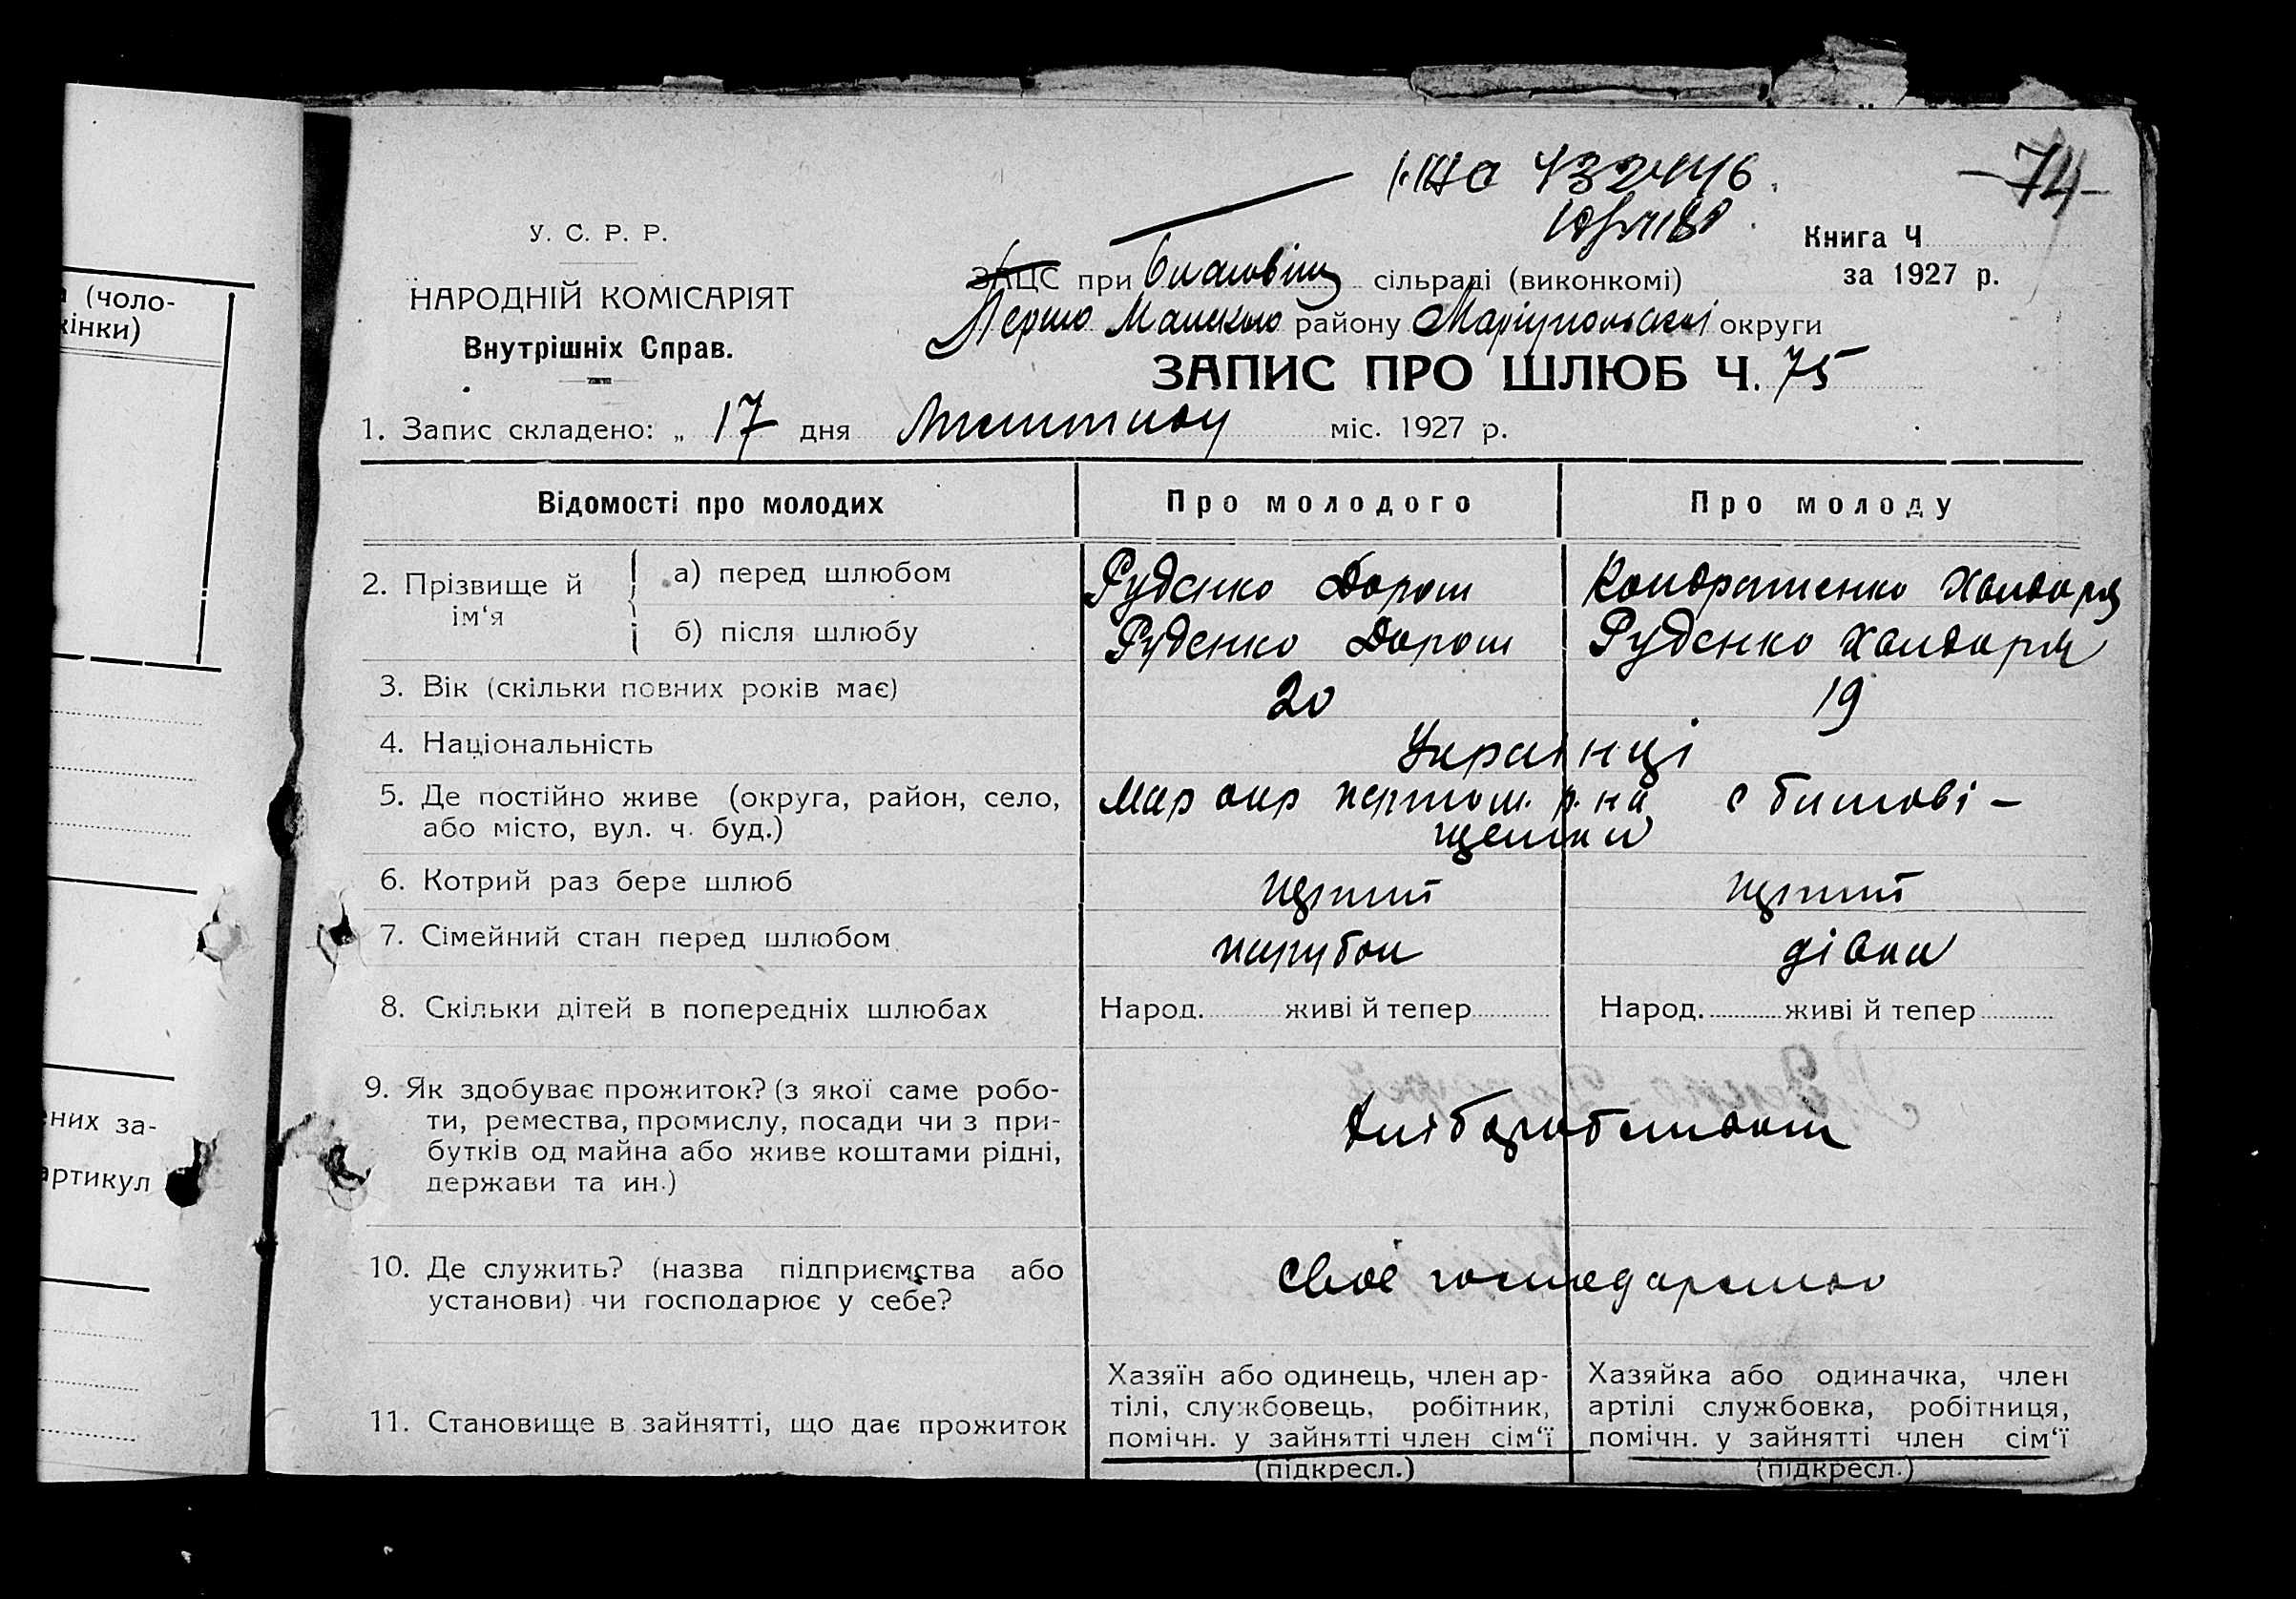 -74-
У. С. Р. Р.
НАРОДНІЙ КОМІСАРІЯТ
Внутрішніх Справ.
Книга Ч
за 1927 р.
ЗАЦС при сільраді (виконкомі)
району Маріупольської округи
ЗАПИС ПРО ШЛЮБ Ч. 75
1. Запис складено: „ 17 дня міс. 1927 р.
а (чоло-
жінки)
Відомості про молодих Про молодого Про молоду
2. Прізвище й ім‘я а) перед шлюбом Руденко Дорош Кондратенко
б) після шлюбу Руденко Дорош Руденко
3. Вік (скільки повних років має) 20 19
4. Національність Украінці
5. Де постійно живе (округа, район, село,
або місто, вул. ч. буд.)
6. Котрий раз бере шлюб
7. Сімейний стан перед шлюбом парубок дівка
8. Скільки дітей в попередніх шлюбах Народ. живі й тепер Народ. живі й тепер
9. Як здобуває прожиток? (з якої саме робо-
ти, ремества, промислу, посади чи з при-
бутків од майна або живе коштами рідні,
держави та ин.)
ених за-
артикул
10. Де служить? (назва підприємства або
установи) чи господарює у себе?
своє господарство
11. Становище в зайнятті, що дає прожиток
Хазяїн або одинець, член ар-
тілі, службовець, робітник,
помічн. у зайнятті член сім‘ї
(підкресл.)
Хазяйка або одиначка, член
артілі службовка, робітниця,
помічн. у зайнятті член сім‘ї
(підкресл.)